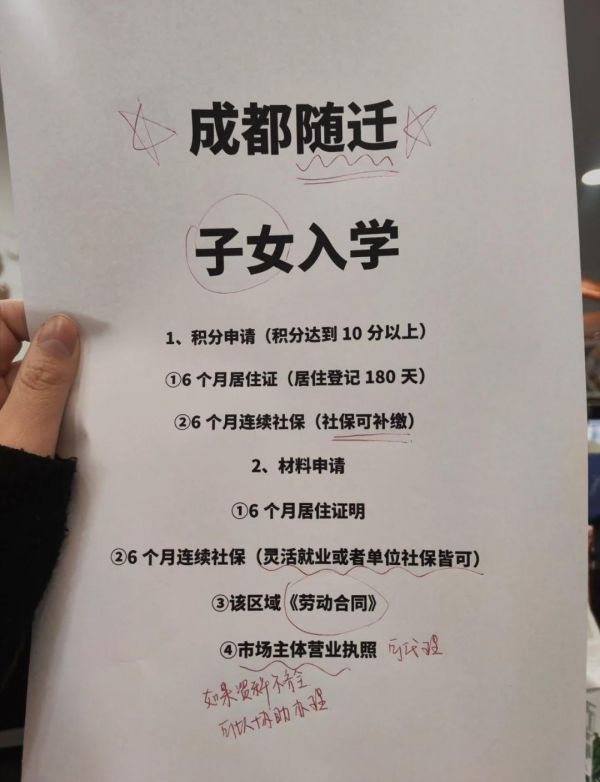 成都随迁
子女入学
1、积分申请（积分达到 10 分以上）
①6 个月居住证（居住登记 180 天）
②6 个月连续社保（社保可补缴）
2、材料申请
①6 个月居住证明
②6 个月连续社保（灵活就业或者单位社保皆可）
③该区域《劳动合同》
④市场主体营业执照 可代理
如果资料不全
可以协助办理